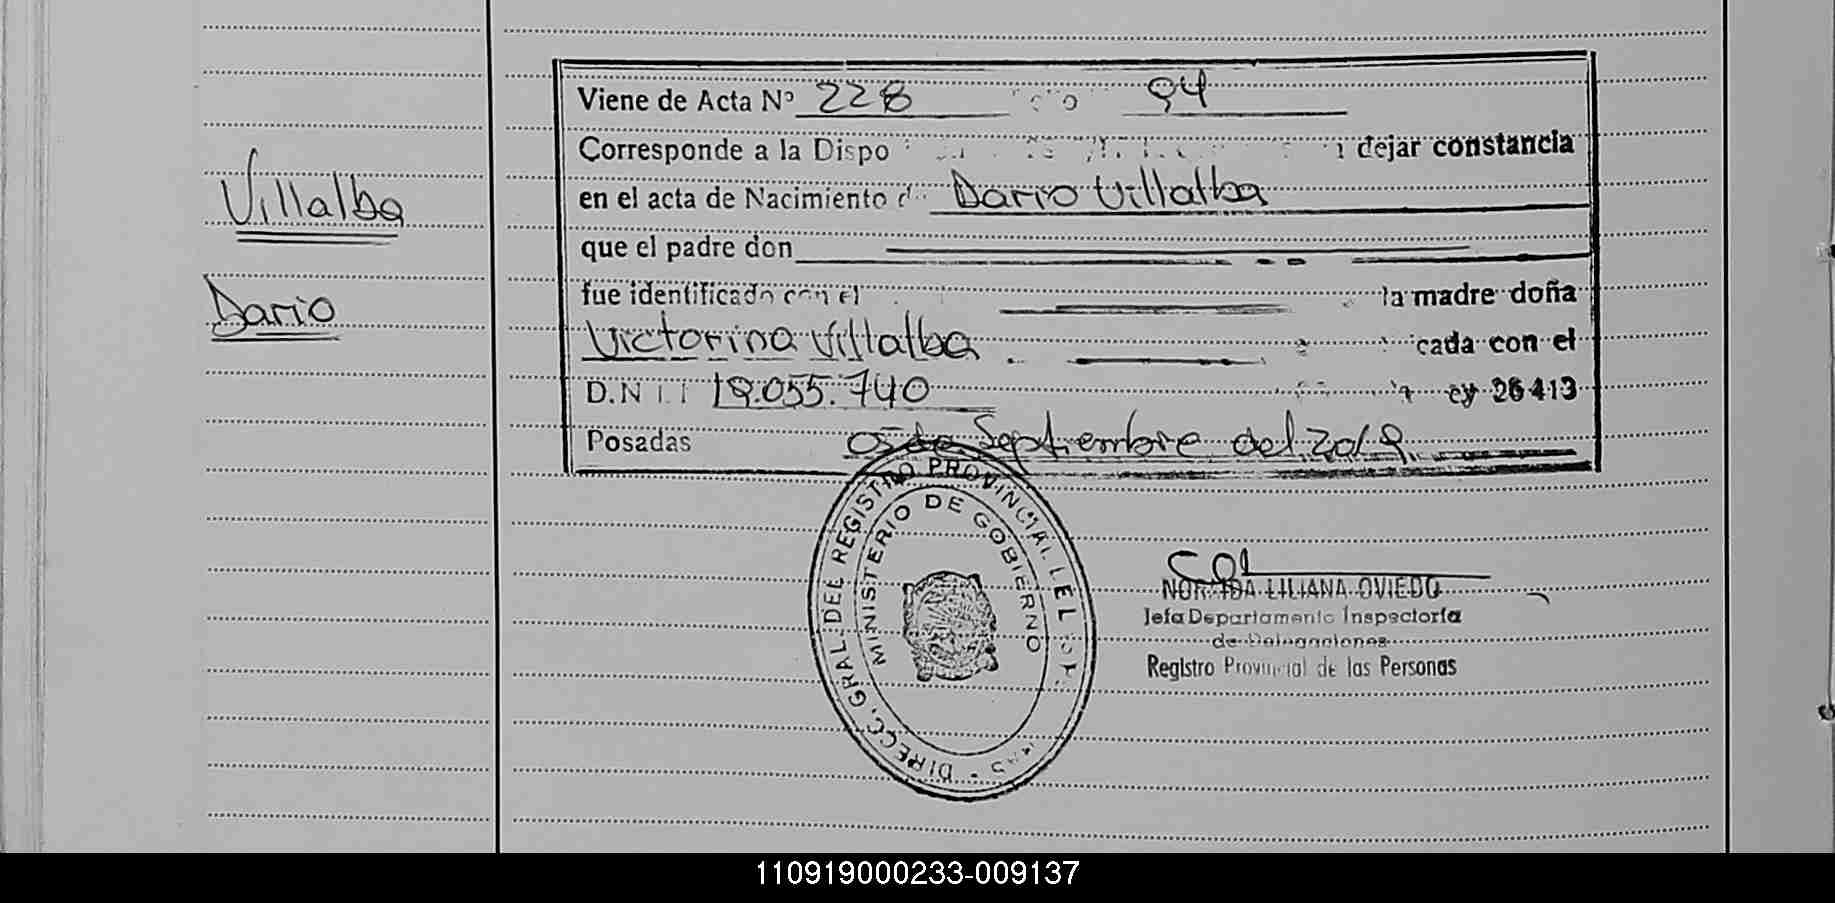 Villalba
Dario
Viene de Acta Nº 228 94
Corresponde a la Dispo dejar constancia
en el acta de Nacimiento Dario Villalba
que el padre don
fue identificado con el la madre doña
Victorina Villalba cada con el
D.N.I 18.055.740 ey 26413
Posadas 05 de Septiembre del 2019
DIRECC. GRAL. DEL REGISTRO PROVINCIAL
MINISTERIO DE GOBIERNO
LILIANA OVIEDO
Jefa Departamento Inspectoría
de Delegaciones
Registro Provincial de las Personas
110919000233-009137